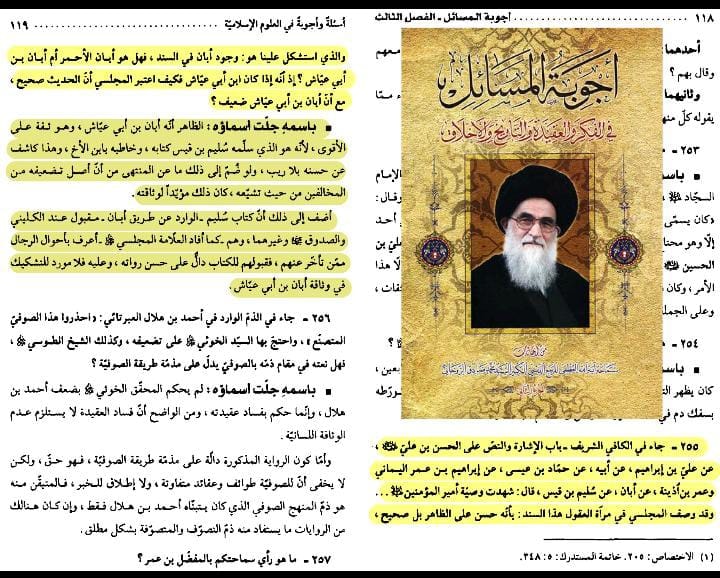 ١١٨ ........ أجوبة المسائل ـ الفصل الثالث
أحدهما:
وقال بهم؟
وثانيهما
يقوله كلّ منهم
٢٥٣ ـ
باسمه
السجّاد
الإمام
وقال:
«كان يسمّى
أحد
إلّا وهو محتا
عليّ بن
الحسين
لّا هذا
الأمر، وكان
وعلى الجملة
٢٥٤ ـ
باسمه
كان يظهر التـ
بسفك دم في
أجوبة المسائل
في الفكر والعقيدة والتاريخ والأخلاق
٢٥٥ ـ جاء في الكافي الشريف ـ باب الإشارة والنصّ على الحسن بن عليّ ،
عن عليّ بن إبراهيم، عن أبيه، عن حمّاد بن عيسى، عن إبراهيم بن عمر اليماني
وعمر بن اُذينة، عن أبان، عن سُليم بن قيس، قال: شهدت وصيّة أمير المؤمنين ...
وقد وصف المجلسي في مرآة العقول هذا السند: بأنّه حسن على الظاهر بل صحيح،
(١) الاختصاص: ٢٠٥. خاتمة المستدرك: ٥: ٣٤٨.
أسئلة وأجوبة في العلوم الإسلاميّة ........ ١١٩
والذي استشكل علينا هو: وجود أبان في السند، فهل هو أبان الأحمر أم أبان بن
أبي عيّاش؟ إذ أنّه إذا كان ابن أبي عيّاش فكيف اعتبر المجلسي أنّ الحديث صحيح،
مع أنّ أبان بن أبي عيّاش ضعيف؟
باسمه جلّت اسماؤه: الظاهر أنّه أبان بن أبي عيّاش، وهو ثقة على
الأقوى، لأنّه هو الذي سلّمه سُليم بن قيس كتابه، وخاطبه بابن الأخ، وهذا كاشف
عن حسنه بلا ريب، ولو ضُمّ إلى ذلك ما عن المنتهى من أنّ أصل تضعيفه من
المخالفين من حيث تشيّعه، كان ذلك مؤيّداً لوثاقته.
أضف إلى ذلك أنّ كتاب سُليم ـ الوارد عن طريق أبان ـ مقبول عند الكليني
والصدوق وغيرهما، وهم ـ كما أفاد العلّامة المجلسي ـ أعرف بأحوال الرجال
ممّن تأخّر عنهم، فقبولهم للكتاب دالٌّ على حسن رواته، وعليه فلا مورد للتشكيك
في وثاقة أبان بن أبي عيّاش.
٢٥٦ ـ جاء في الذمّ الوارد في أحمد بن هلال العبرتائي: «احذروا هذا الصوفيّ
المتصنّع»، واحتجّ بها السيّد الخوئي على تضعيفه، وكذلك الشيخ الطوسي ،
فهل نعته في مقام ذمّه بالصوفيّ يدلّ على مذمّة طريقة الصوفيّة؟
باسمه جلّت اسماؤه: لم يحكم المحقّق الخوئي بضعف أحمد بن
هلال، وإنّما حكم بفساد عقيدته، ومن الواضح أنّ فساد العقيدة لا يستلزم عدم
الوثاقة اللسانيّة.
وأمّا كون الرواية المذكورة دالّة على مذمّة طريقة الصوفيّة، فهو حقّ، ولكن
لا يخفى أنّ للصوفيّة طوائف وعقائد متفاوتة، ولا إطلاق للخبر، فالمتيقّن منه
هو ذمّ المنهج الصوفي الذي كان يتبنّاه أحمد بن هلال فقط، وإن كان هنالك
من الروايات ما يستفاد منه ذمّ التصوّف والمتصوّفة بشكل مطلق.
٢٥٧ ـ ما هو رأي سماحتكم بالمفضّل بن عمر؟